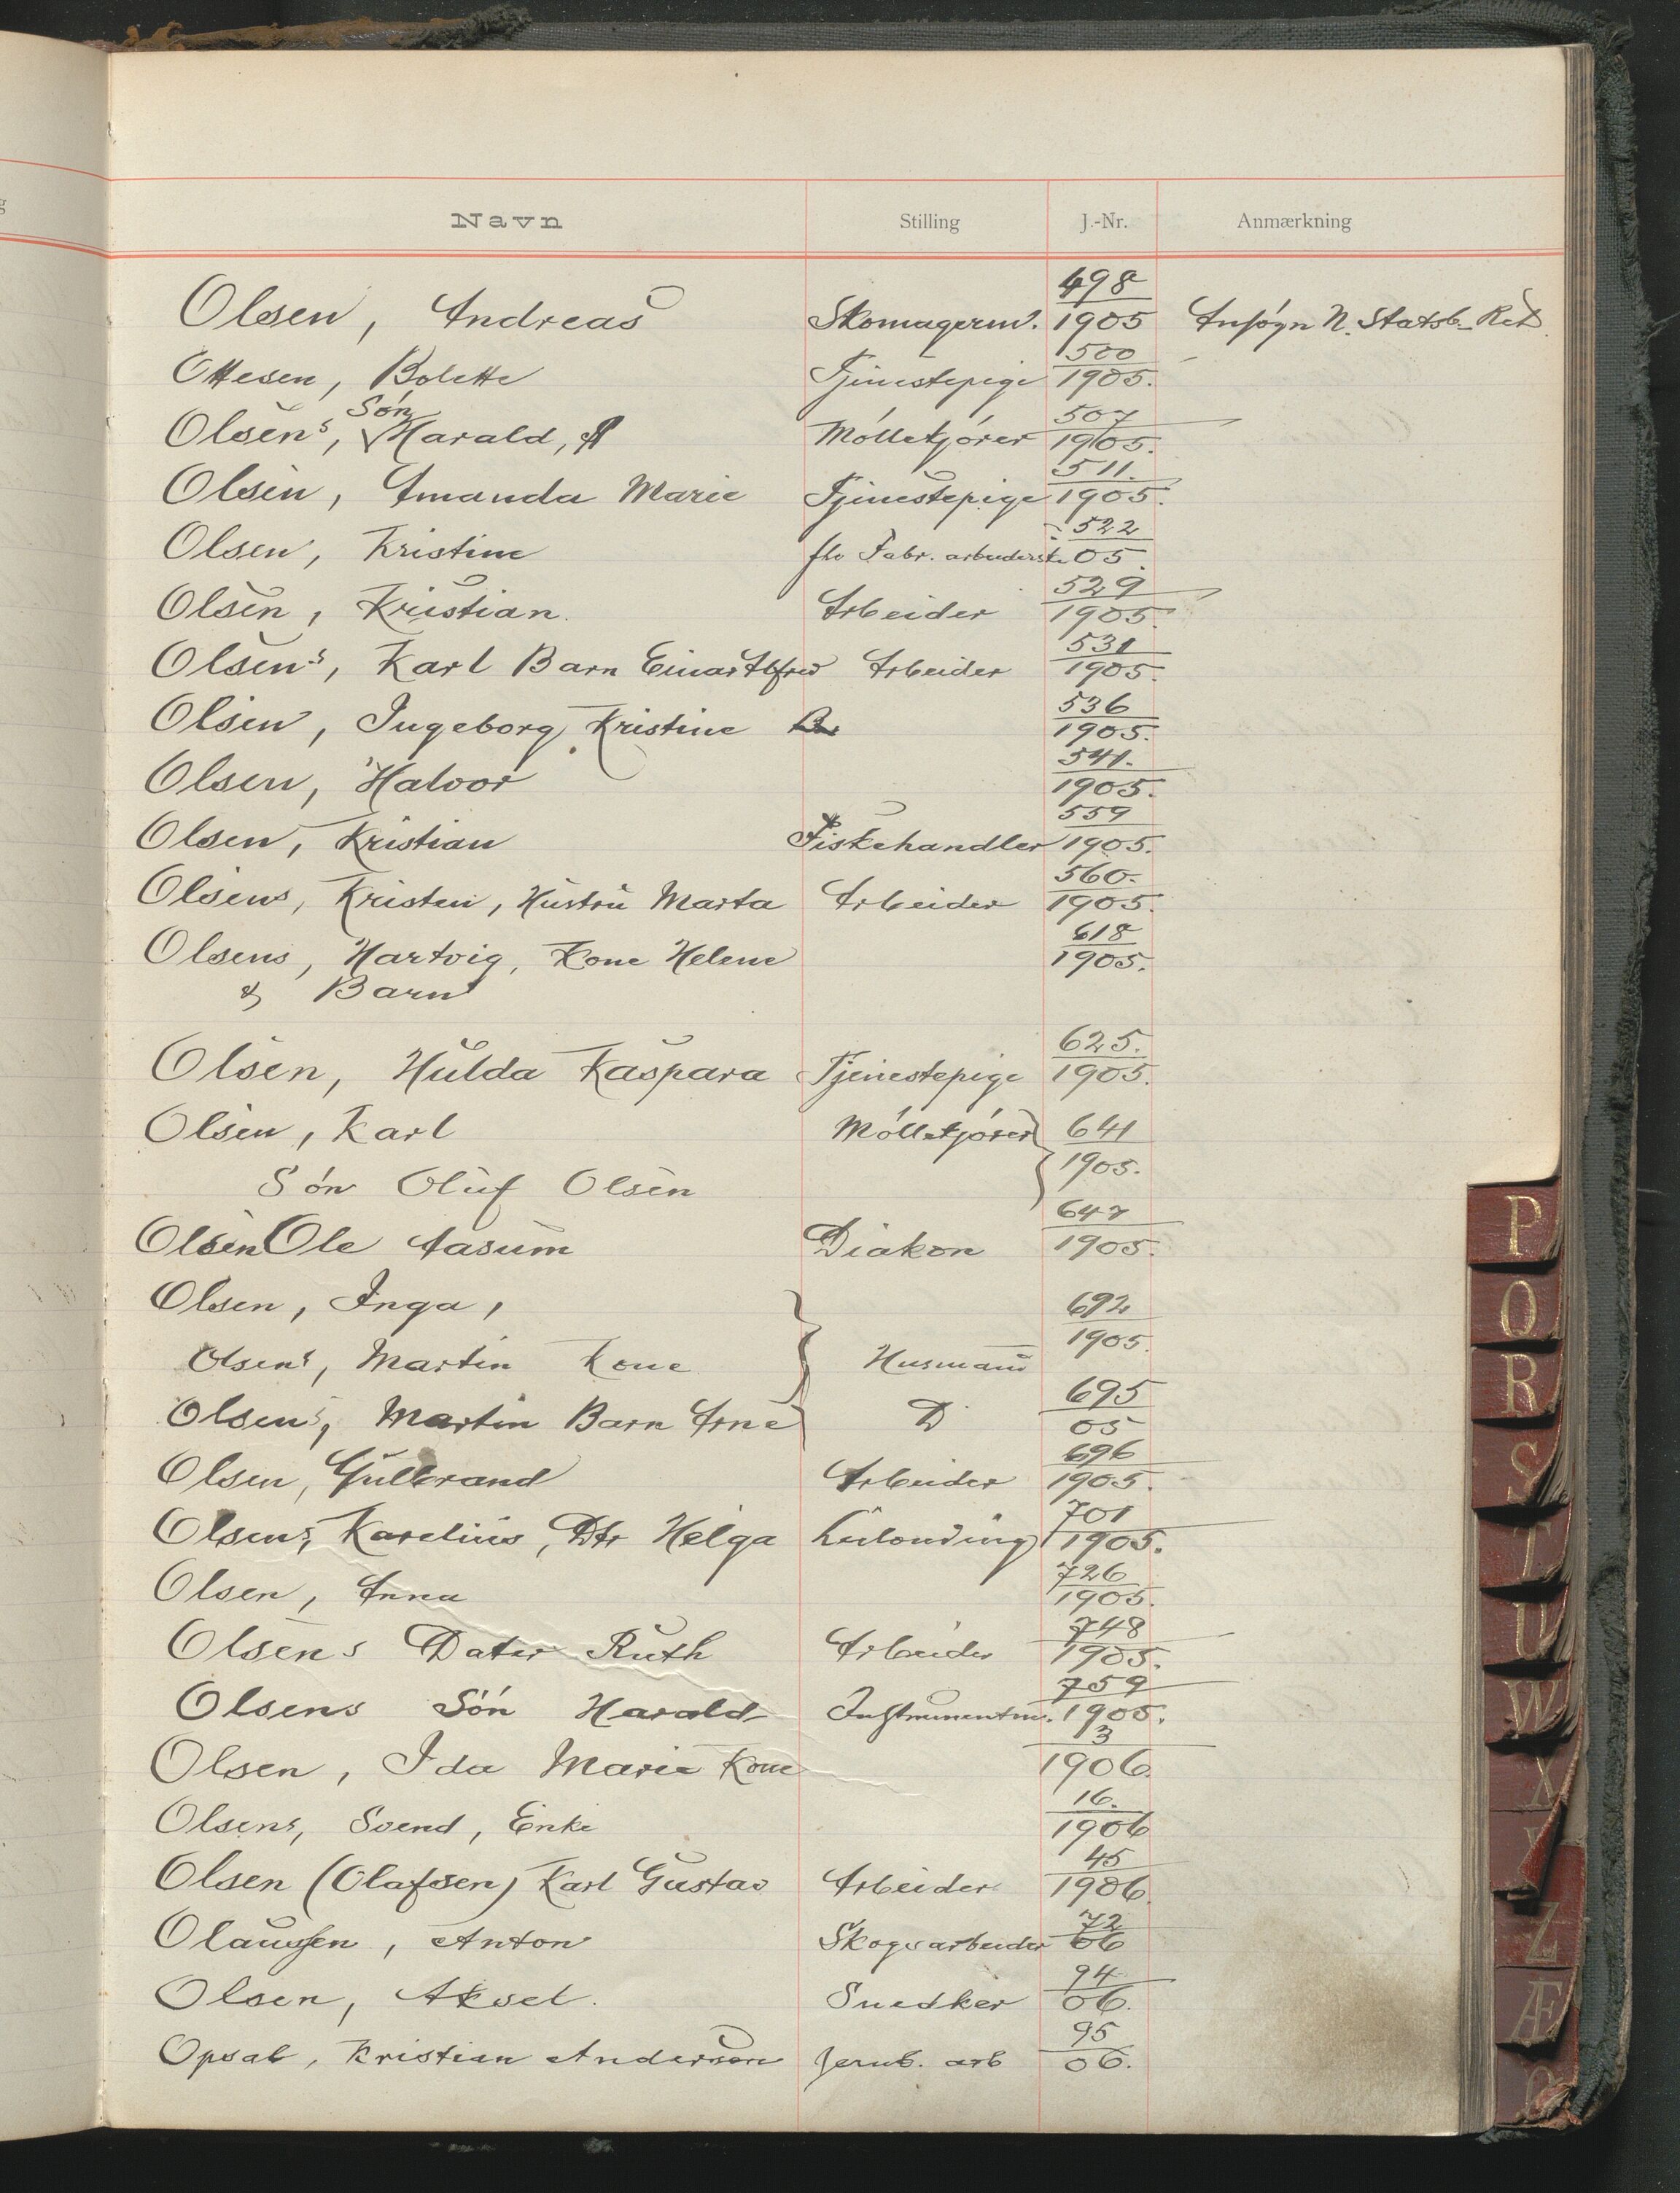 Navn Stilling J.-Nr. Anmærkning
498
Olsen, Andreas Skomagerm. 1905 Ansøgn N. Statsb. Ret
500
Ottesen, Bolette Tjenestepige 1905.
Søn 507
Olsens, Harald, Møllekjører 1905.
511.
Olsen, Amanda Marie Tjenestepige 1905.
522
Olsen, Kristine Fabr. arbeiderske 05.
529
Olsen, Kristian. Arbeider 1905.
531
Olsens, Karl Barn Einar Alfred Arbeider 1905.
536
Olsen, Ingeborg Kristine 1905.
541.
Olsen, Halvor 1905.
559
Olsen, Kristian Fiskehandler 1905.
560.
Olsens, Kristen, Hustru Marta Arbeider 1905.
618
Olsens, Hartvig, Kone Helene 1905.
& Barn
625.
Olsen, Hulda Kaspara Tjenestepige 1905.
Olsen, Karl Møllekjører 641
1905.
Søn Oluf Olsen
647
Olsen Ole Aasum Diakon 1905.
Olsen, Inga, 692
1905.
Olsens, Martin Kone Husmand
695
Olsens, Martin Barn Arne D 05
696
Olsen, Gulbrand Arbeider 1905.
701
Olsens, Karelius, Dtr Helga 1905.
726
Olsen, Anna 1905.
748
Olsens Dater Ruth Arbeider 1905.
759
Olsens Søn Harald Instrumentm. 1905.
3
Olsen, Ida Marie Kone 1906.
16.
Olsens, Svend, Enke 1906
45
Olsen (Olafsen) Karl Gustav Arbeider 1906.
72
Olaussen, Anton Skogsarbeider 06
94
Olsen, Aksel. Snedker 06.
95
Opsal, Kristian Anderson Jernb. arb 06.
P
O
R
S
T
U
W
X
Z
Æ